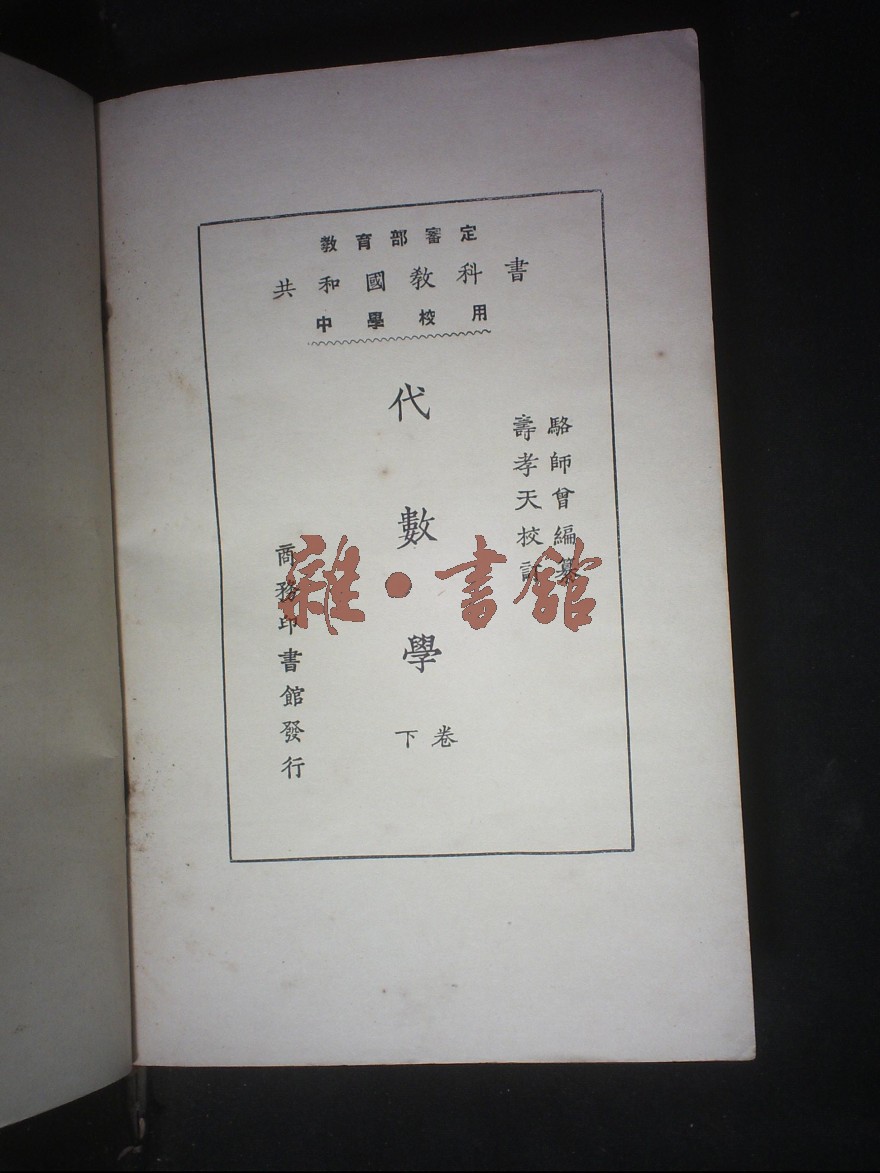 教育部審定
共和國教科書
中學校用
駱師曾編纂
壽孝天校訂
代數學
下卷
商務印書館發行
雜·書館